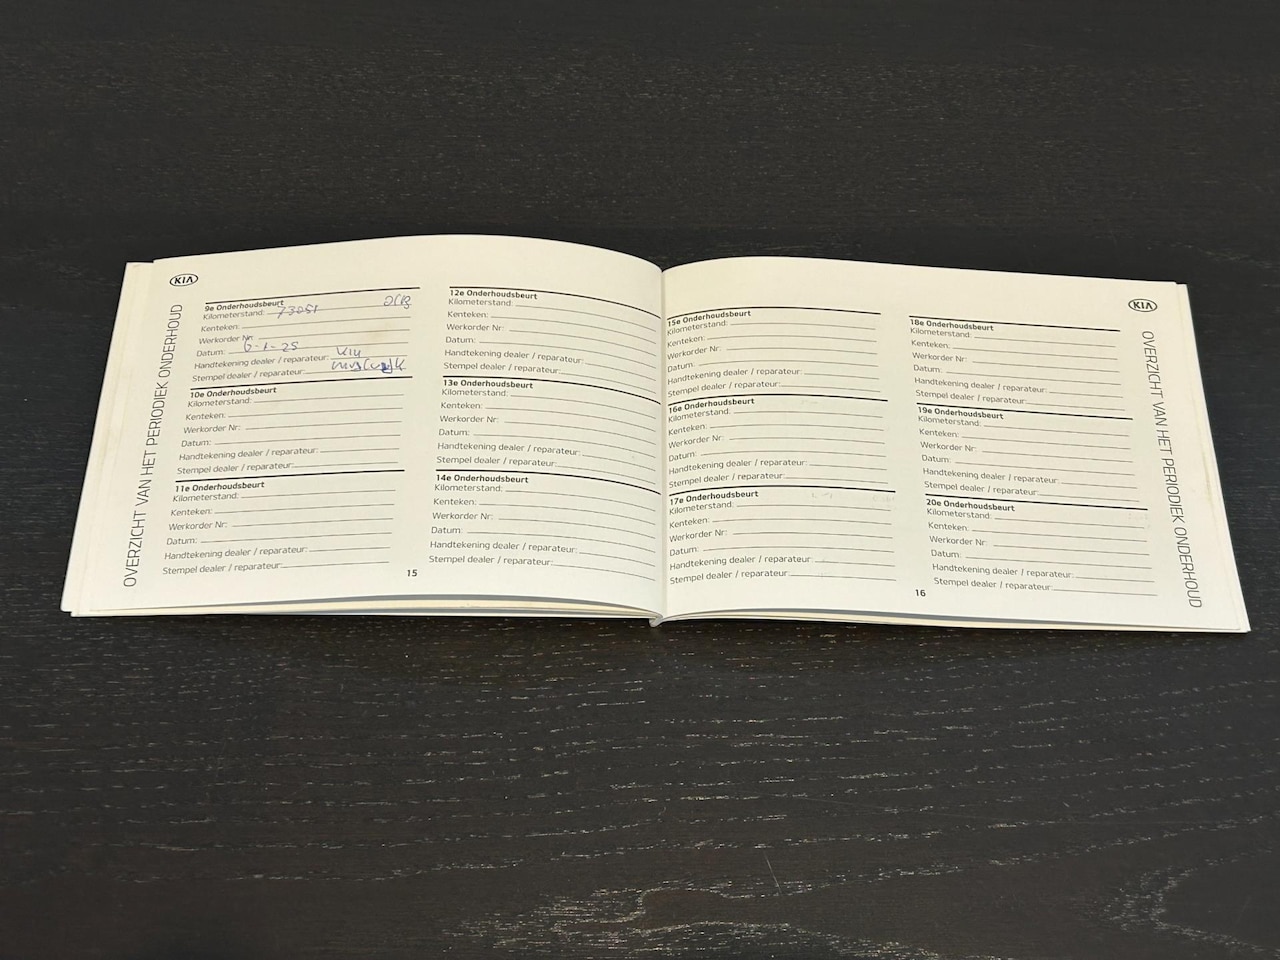 KIA
OVERZICHT VAN HET PERIODIEK ONDERHOUD
9e Onderhoudsbeurt
Kilometerstand: 73051
Kenteken:
Werkorder Nr:
Datum: 6-1-25
Handtekening dealer / reparateur: KIA
Stempel dealer / reparateur:
10e Onderhoudsbeurt
Kilometerstand:
Kenteken:
Werkorder Nr:
Datum:
Handtekening dealer / reparateur:
Stempel dealer / reparateur:
11e Onderhoudsbeurt
Kilometerstand:
Kenteken:
Werkorder Nr:
Datum:
Handtekening dealer / reparateur:
Stempel dealer / reparateur:
12e Onderhoudsbeurt
Kilometerstand:
Kenteken:
Werkorder Nr:
Datum:
Handtekening dealer / reparateur:
Stempel dealer / reparateur:
13e Onderhoudsbeurt
Kilometerstand:
Kenteken:
Werkorder Nr:
Datum:
Handtekening dealer / reparateur:
Stempel dealer / reparateur:
14e Onderhoudsbeurt
Kilometerstand:
Kenteken:
Werkorder Nr:
Datum:
Handtekening dealer / reparateur:
Stempel dealer / reparateur:
15
15e Onderhoudsbeurt
Kilometerstand:
Kenteken:
Werkorder Nr:
Datum:
Handtekening dealer / reparateur:
Stempel dealer / reparateur:
16e Onderhoudsbeurt
Kilometerstand:
Kenteken:
Werkorder Nr:
Datum:
Handtekening dealer / reparateur:
Stempel dealer / reparateur:
17e Onderhoudsbeurt
Kilometerstand:
Kenteken:
Werkorder Nr:
Datum:
Handtekening dealer / reparateur:
Stempel dealer / reparateur:
18e Onderhoudsbeurt
Kilometerstand:
Kenteken:
Werkorder Nr:
Datum:
Handtekening dealer / reparateur:
Stempel dealer / reparateur:
19e Onderhoudsbeurt
Kilometerstand:
Kenteken:
Werkorder Nr:
Datum:
Handtekening dealer / reparateur:
Stempel dealer / reparateur:
20e Onderhoudsbeurt
Kilometerstand:
Kenteken:
Werkorder Nr:
Datum:
Handtekening dealer / reparateur:
Stempel dealer / reparateur:
16
KIA
OVERZICHT VAN HET PERIODIEK ONDERHOUD